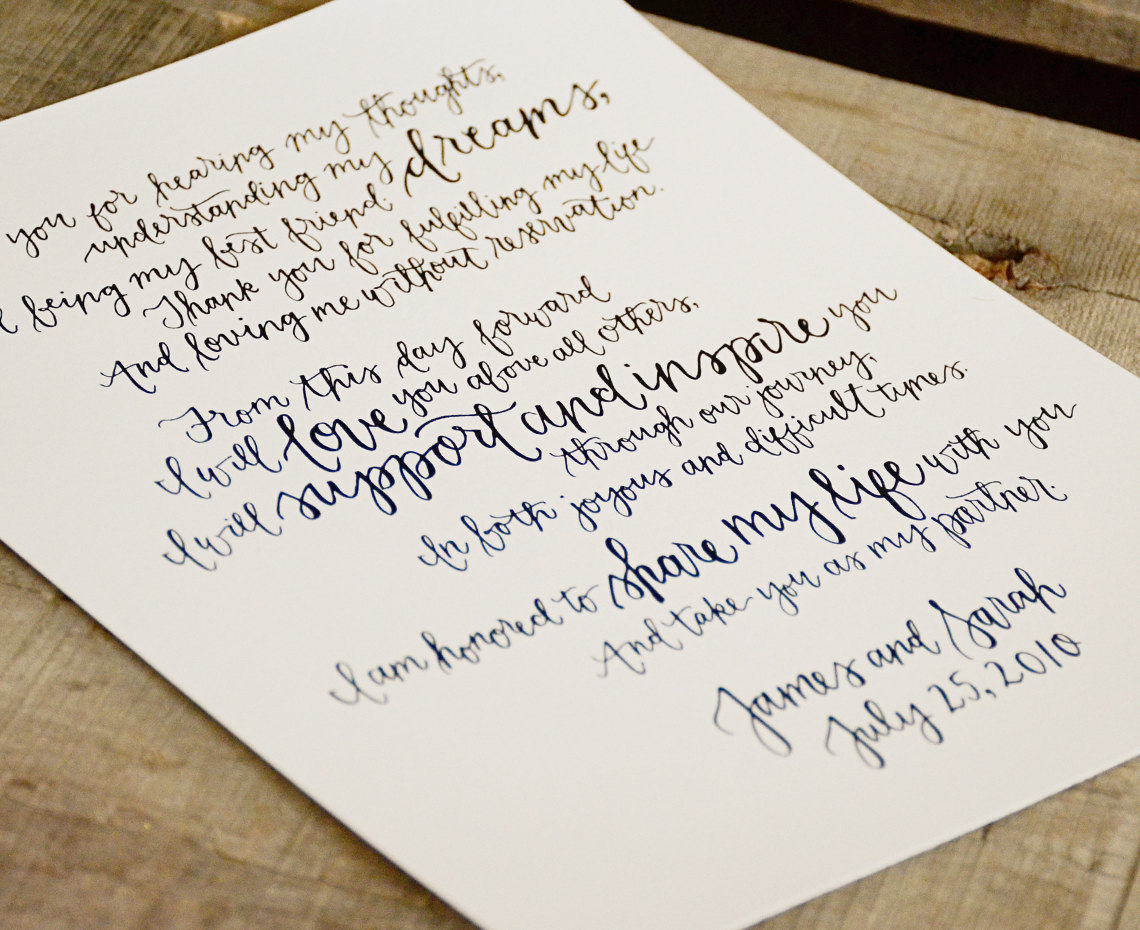 you for hearing my thoughts,
understanding my dreams,
being my best friend.
Thank you for fulfilling my life
And loving me without reservation.
From this day forward
I will love you above all others,
I will support and inspire you
through our journey,
In both joyous and difficult times.
I am honored to share my life with you
And take you as my partner.
James and Sarah
July 25, 2010